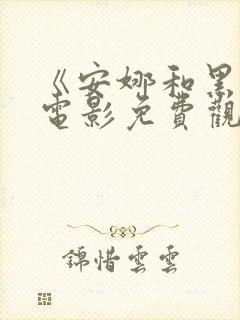 《安娜和黑
電影免費觀
錦惜雲雲